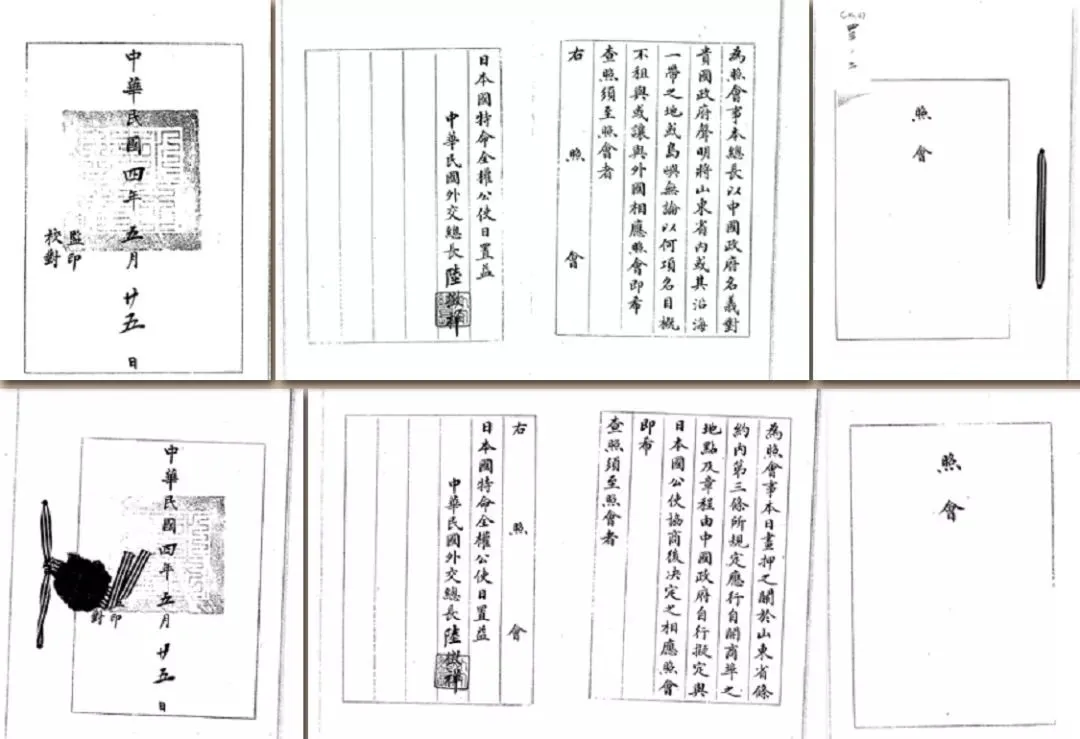 照會
為照會事本總長以中國政府名義對
貴國政府聲明將山東省內或其沿海
一帶之地或島嶼無論以何項名目概
不租與或讓與外國相應照會即希
查照須至照會者
右照會
日本國特命全權公使日置益
中華民國外交總長陸徵祥
中華民國四年五月廿五日
監印
校對
照會
為照會事本日畫押之關於山東省條
約內第三條所規定應行自開商埠之
地點及章程由中國政府自行擬定與
日本國公使協商後決定之相應照會
即希
查照須至照會者
右照會
日本國特命全權公使日置益
中華民國外交總長陸徵祥
中華民國四年五月廿五日
印
對